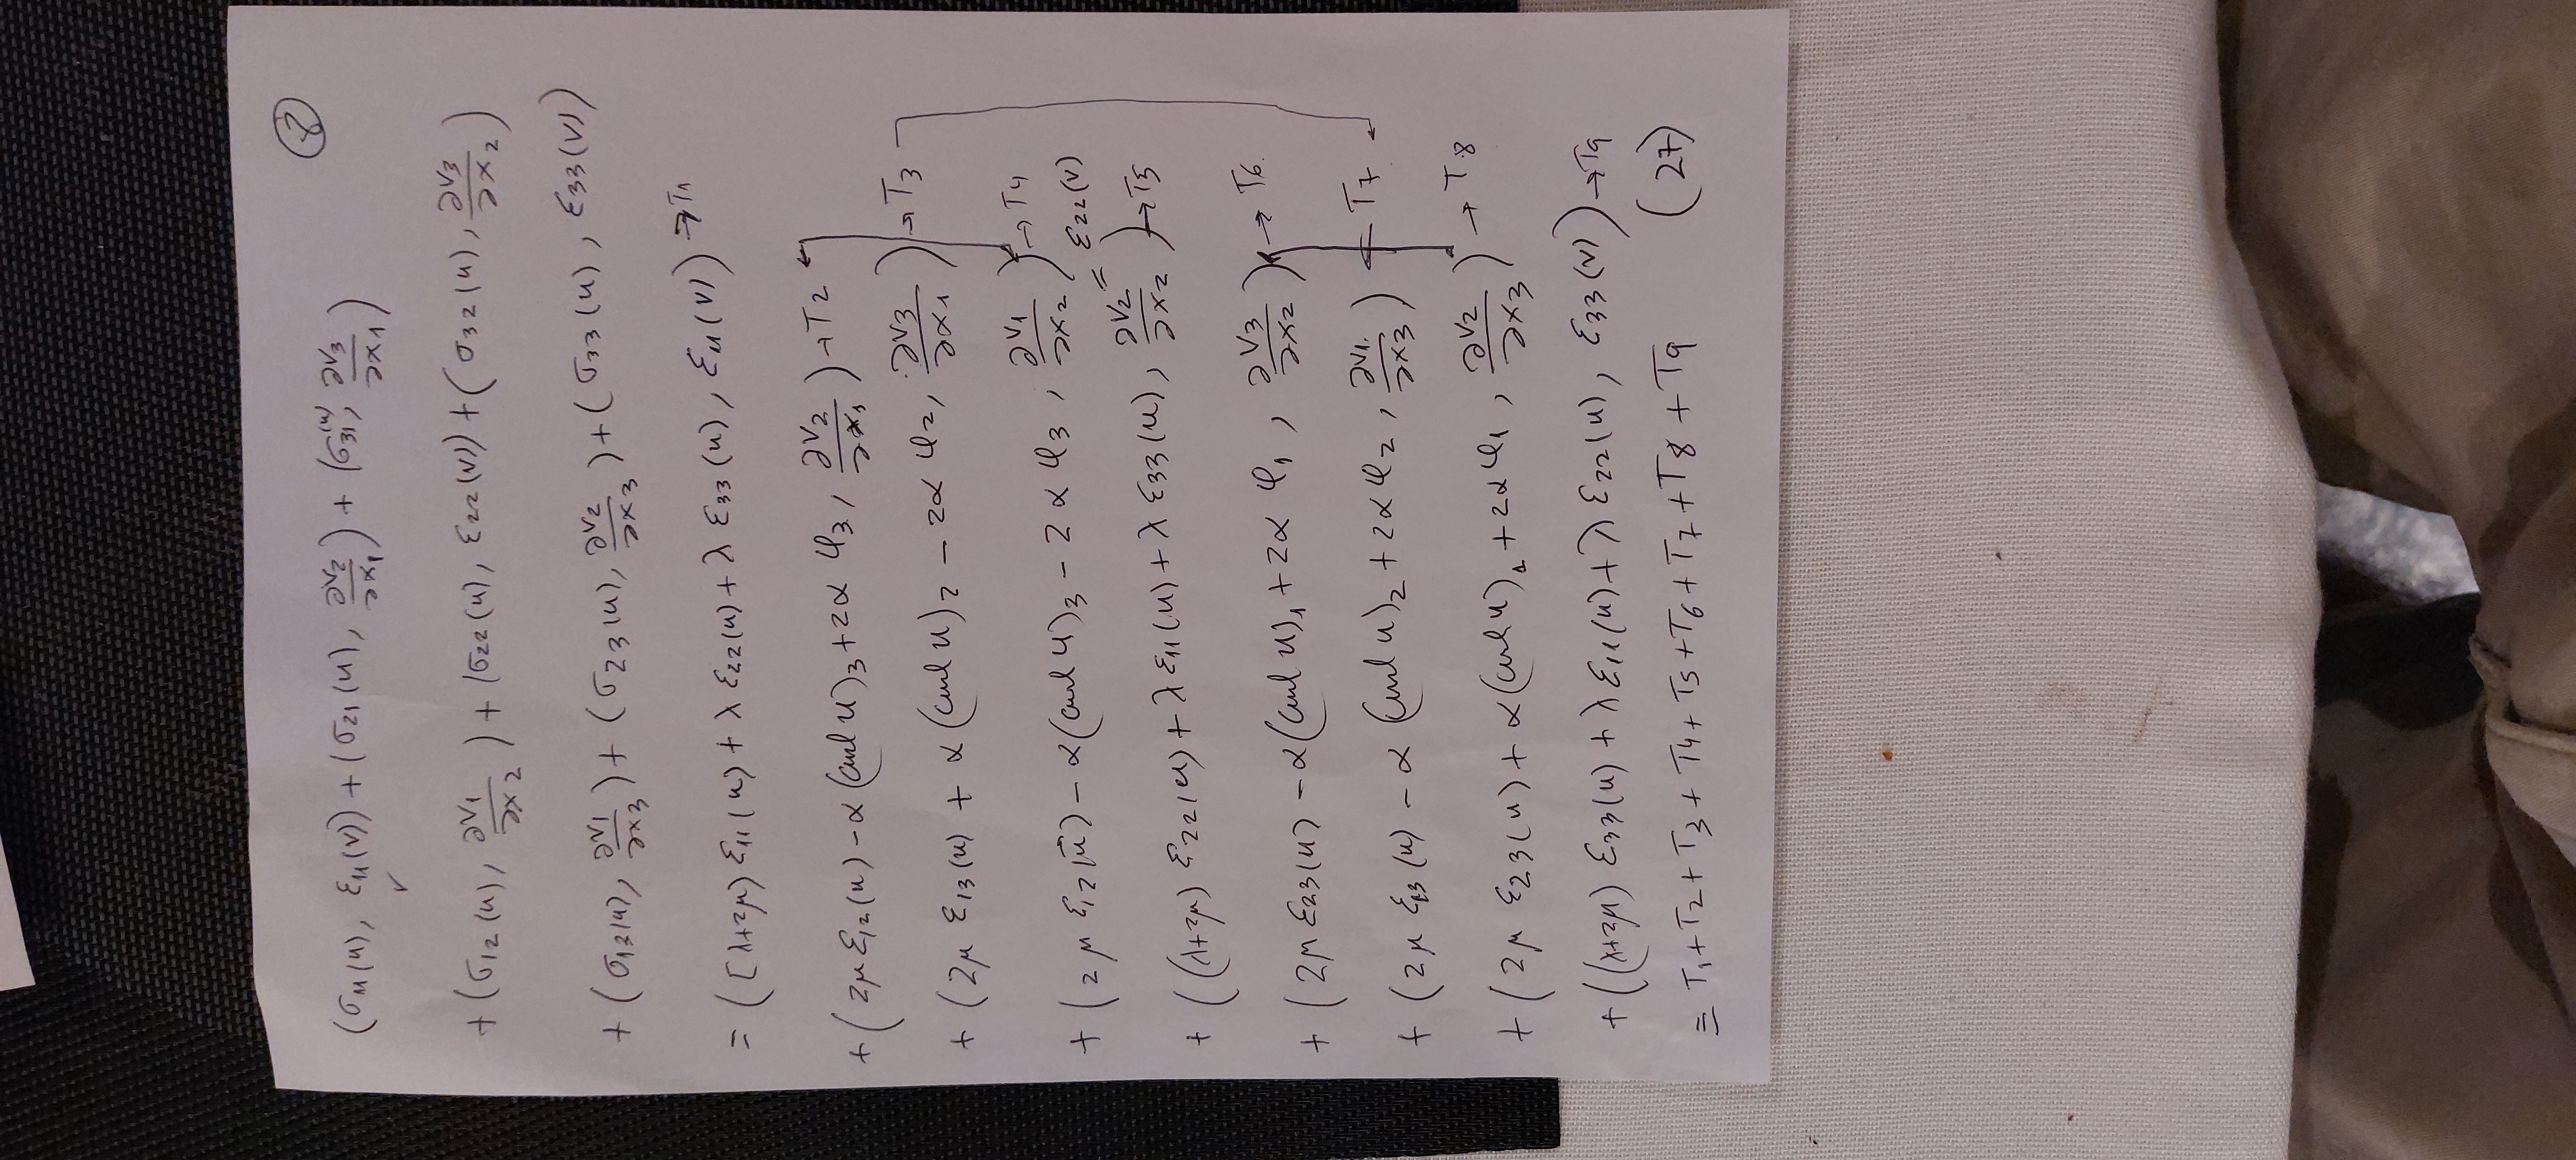 ⑧
(σ₁₁(u), ε₁₁(v)) + (σ₂₁(u), ∂v₂/∂x₁) + (σ₃₁(u), ∂v₃/∂x₁)
✓
+ (σ₁₂(u), ∂v₁/∂x₂) + (σ₂₂(u), ε₂₂(v)) + (σ₃₂(u), ∂v₃/∂x₂)
+ (σ₁₃(u), ∂v₁/∂x₃) + (σ₂₃(u), ∂v₂/∂x₃) + (σ₃₃(u), ε₃₃(v))
= ([λ+2μ) ε₁₁(u) + λ ε₂₂(u) + λ ε₃₃(u), ε₁₁(v)) → T₁
+ (2μ ε₁₂(u) − α(curl u)₃ + 2α φ₃, ∂v₂/∂x₁) → T₂
+ (2μ ε₁₃(u) + α(curl u)₂ − 2α φ₂, ∂v₃/∂x₁) → T₃
+ (2μ ε₁₂(u) − α(curl u)₃ − 2α φ₃, ∂v₁/∂x₂) → T₄
+ ((λ+2μ) ε₂₂(u) + λ ε₁₁(u) + λ ε₃₃(u), ∂v₂/∂x₂ = ε₂₂(v)) → T₅
+ (2μ ε₂₃(u) − α(curl u)₁ + 2α φ₁, ∂v₃/∂x₂) → T₆
+ (2μ ε₁₃(u) − α(curl u)₂ + 2α φ₂, ∂v₁/∂x₃) ← T₇
+ (2μ ε₂₃(u) + α(curl u)₁ + 2α φ₁, ∂v₂/∂x₃) → T₈
+ ((λ+2μ) ε₃₃(u) + λ ε₁₁(u) + λ ε₂₂(u), ε₃₃(v)) → T₉
= T₁ + T₂ + T₃ + T₄ + T₅ + T₆ + T₇ + T₈ + T₉ (27)